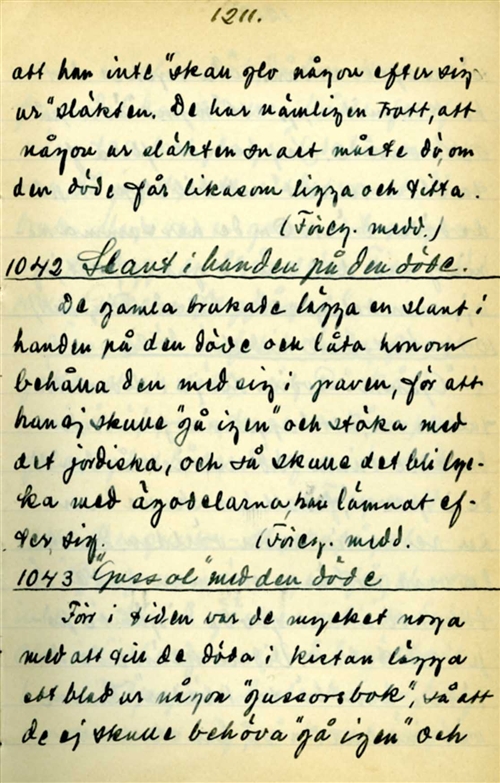 1211.
att han inte "skall glo någon efter sig
ur" släkten. De har nämligen trott, att
någon ur släkten snart måste dö, om
den döde får likasom ligga och titta.
(Föreg. medd.)
1042 Slant i handen på den döde.
De gamla brukade lägga en slant i
handen på den döde och låta honom
behålla den med sig i graven, för att
han ej skulle "gå igen" och stöka med
det jordiska, och så skulle det bli lyc-
ka med ägodelarna, han lämnat ef-
ter sig. (Föreg. medd.
1043 "Gussol" med den döde
Förr i tiden var de mycket noga
med att till de döda i kistan lägga
ett blad ur någon "gussorsbok", så att
de ej skulle behöva "gå igen" och